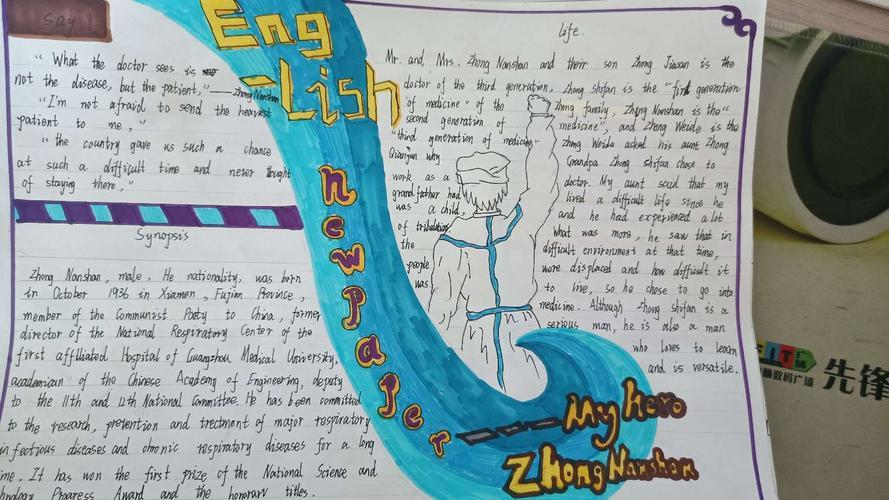 Say
"What the doctor sees is
not the disease, but the patient,"——Zhong Nanshan
"I'm not afraid to send the heaviest
patient to me,"
"the country gave us such a chance
at such a difficult time and never thought
of staying there,"
Synopsis
Zhong Nanshan, male. He nationality, was born
in October 1936 in Xiamen, Fujian Province,
member of the Communist Poety to China, former
director of the National Respiratory Center of the
first affliated Hospital of Guangzhou Medical University,
academician of the Chinese Academy of Engineering, deputy
to the 11th and 12th National Committee. He has been committed
to the research, prevention and trectment of major respiratory
infectious diseases and chronic respiratory diseases for a long
ime. It has won the first prize of the National Science and
hnology Progress Award and the honorary titles.
Eng
-Lish
newpaper
----My hero
Zhong Nanshan
life.
Mr. and Mrs. Zhong Nanshan and their son Zhong Jiawan is the
doctor of the third generation, Zhong shifan is the "first generation
of medicine" of the Zhong family, Zhong Nanshan is the"
second generation of medicine", and Zhong Weide is the
"third generation of medicine" Zhong Weide asked his aunt Zhong
Qianjun why Grandpa Zhong shifan chose to
work as a doctor. My aunt said that my
grandfather had lived a difficult life since he
was a child, and he had experienced a lot
of tribulation. What was more, he saw that in
the difficult environment at that time,
people were displaced and how difficult it
was to live, so he chose to go into
medicine. Although Zhong shifan is a
serious man, he is also a man
who loves to learn
and is versatile.
先锋
数码广场